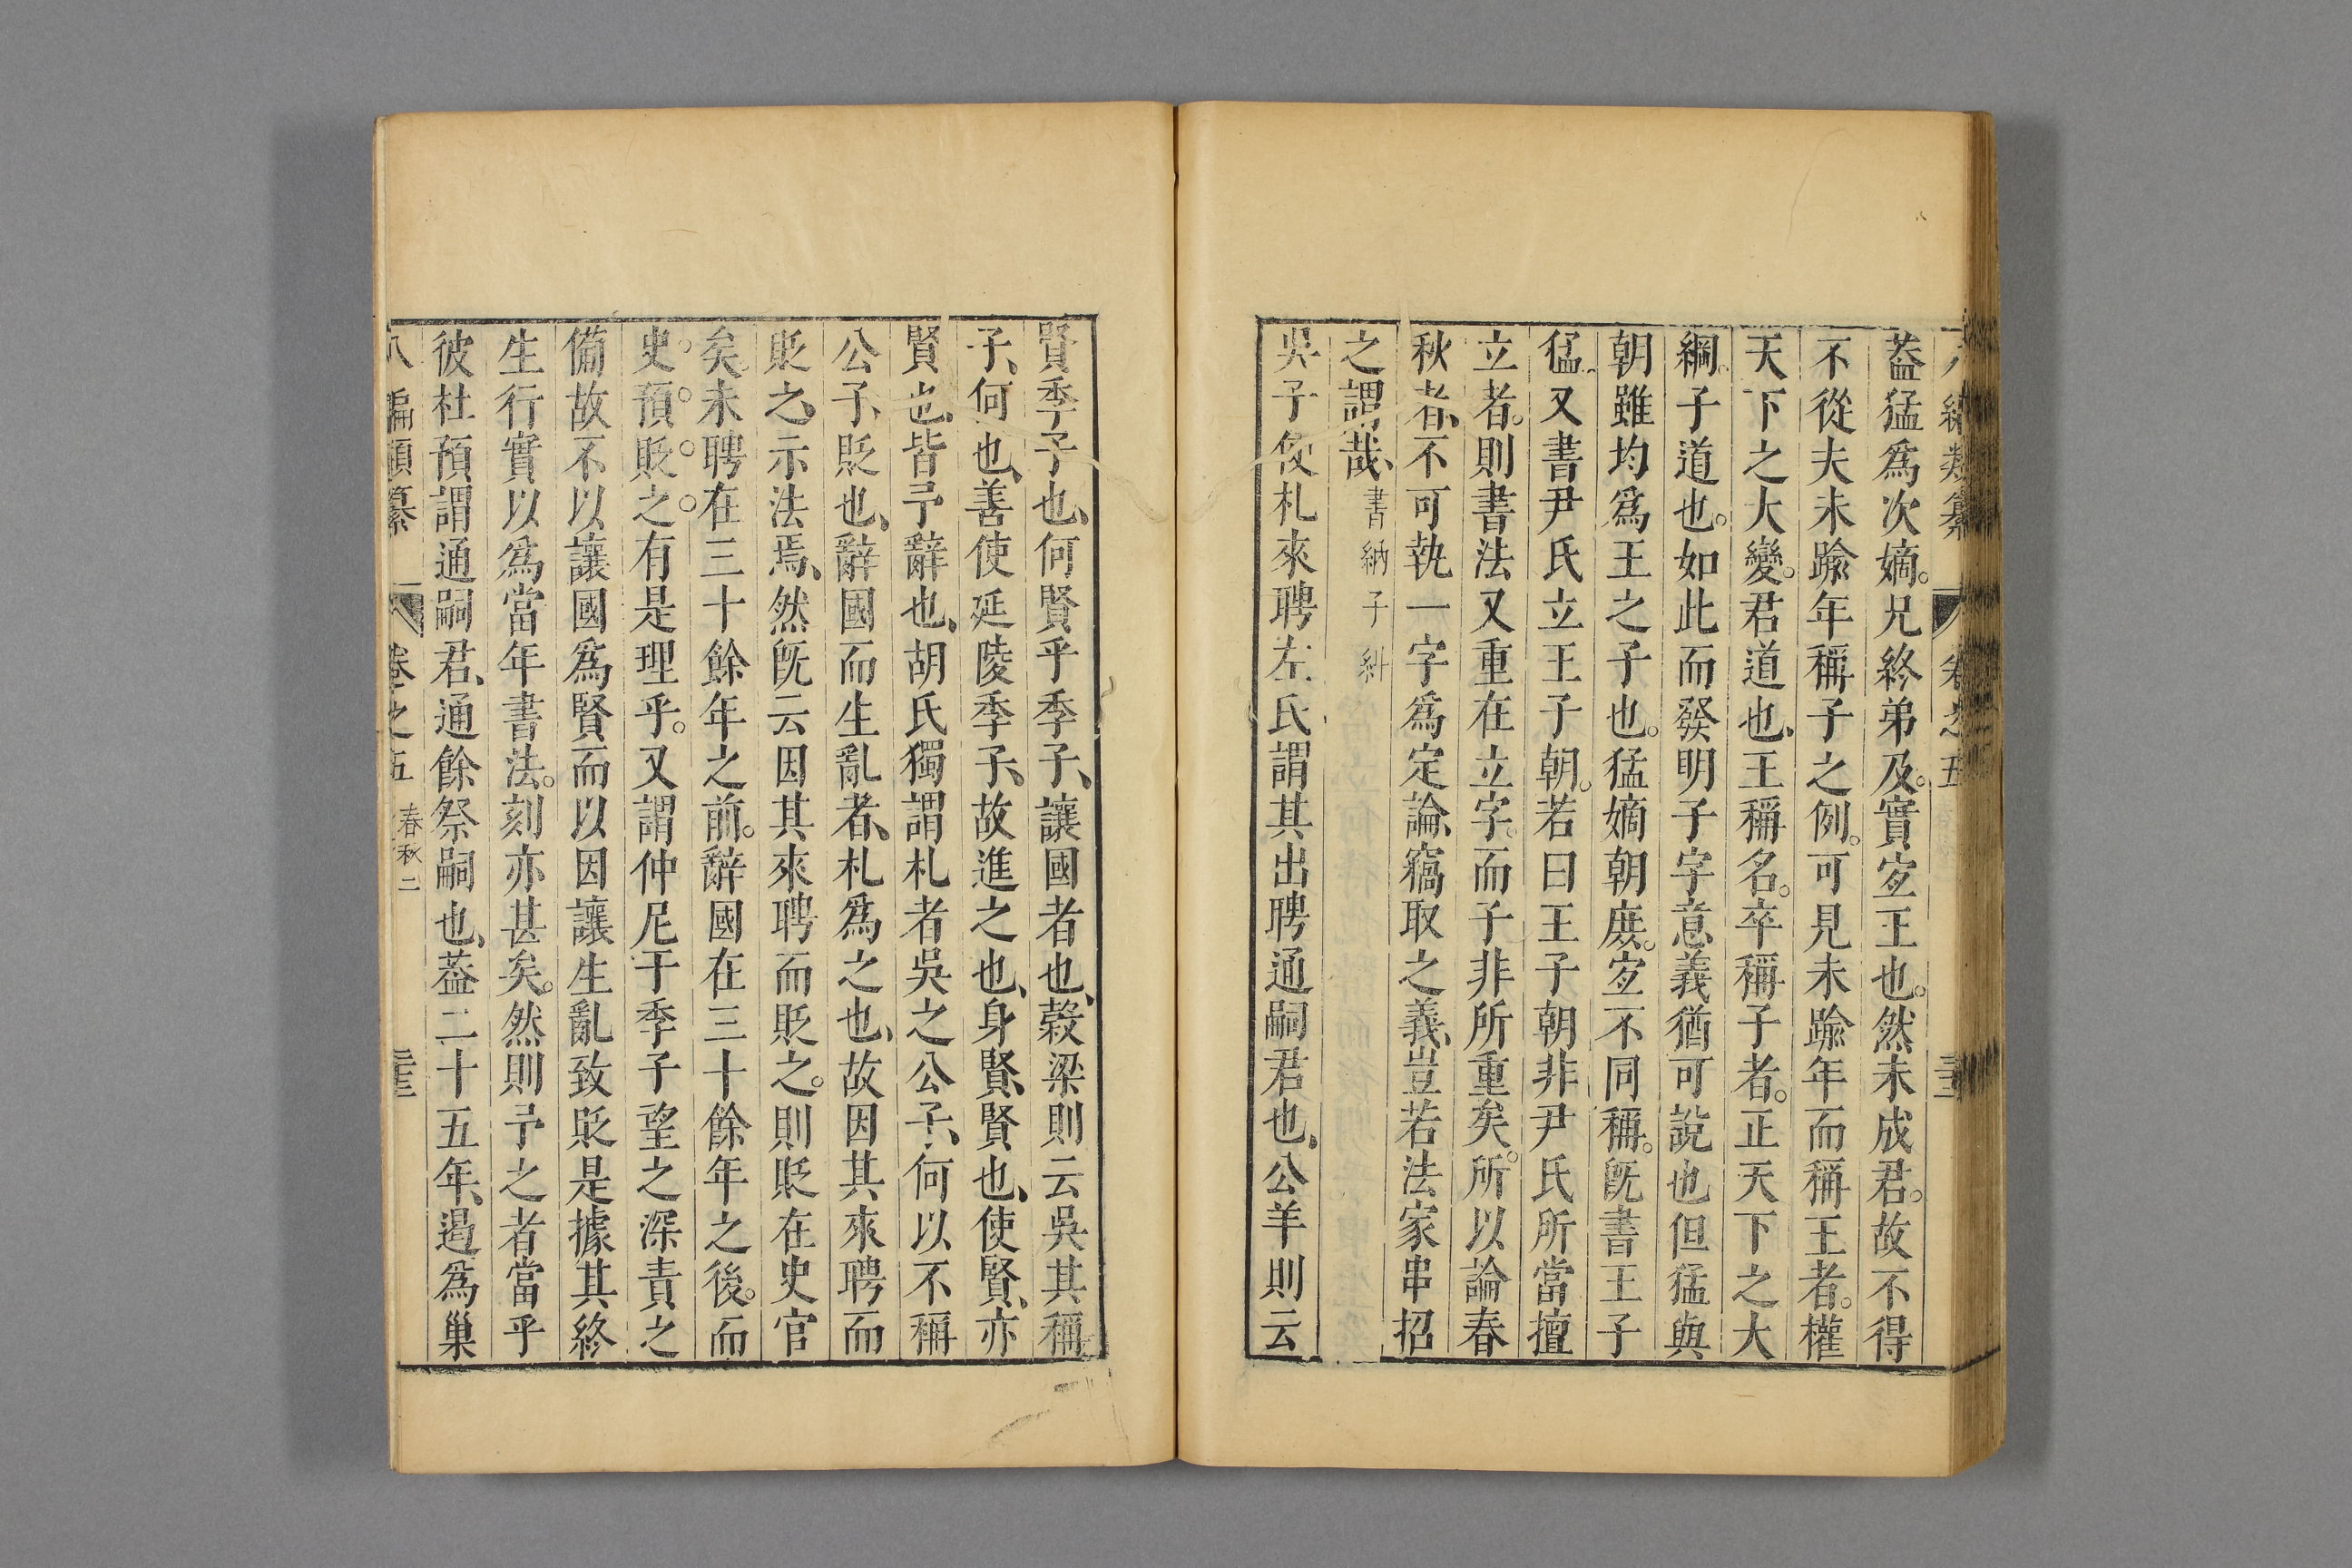 蓋猛爲次嫡。兄終弟及。實㝎王也。然未成君。故不得
不從夫未踰年稱子之例。可見未踰年而稱王者。權
天下之大變。君道也、王稱名。卒稱子者。正天下之大
綱。子道也。如此而發明子字意義猶可說也但猛與
朝雖均爲王之子也。猛嫡朝庶。㝎不同稱。旣書王子
猛。又書尹氏立王子朝。若曰王子朝非尹氏所當擅
立者。則書法又重在立字。而子非所重矣。所以論春
秋者、不可執一字爲定論、竊取之義、豈若法家串招
之謂哉、書納子糾
吳子使札來聘左氏謂其出聘通嗣君也、公羊則云
賢季子也、何賢乎季子、讓國者也、榖梁則云吳其稱
子、何也、善使延陵季子、故進之也、身賢、賢也、使賢、亦
賢也、皆予辭也、胡氏獨謂札者吳之公子、何以不稱
公子、貶也、辭國而生亂者、札爲之也、故因其來聘而
貶之、示法焉、然旣云因其來聘而貶之。則貶在史官
矣。未聘在三十餘年之前。辭國在三十餘年之後。而
史。預。貶。之。有是理乎。又謂仲尼于季子望之深責之
備故不以讓國爲賢而以因讓生亂致貶是據其終
生行實以爲當年書法。刻亦甚矣。然則予之者當乎
彼杜預謂通嗣君、通餘祭嗣也、蓋二十五年、遏爲巢
八編類纂 卷之五 春秋二